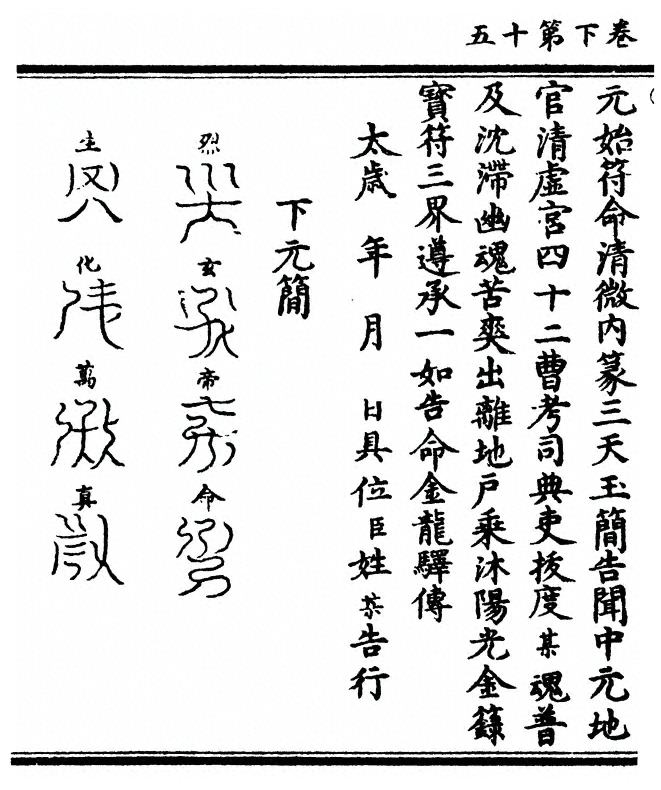 卷下第十五
元始符命清微內篆三天玉簡告聞中元地
官清虛宮四十二曹考司典吏拔度某魂普
及沈滯幽魂苦爽出離地戶乘沐陽光金籙
寶符三界遵承一如告命金龍驛傳
太歲 年 月 日具位臣姓某告行
下元簡
烈 玄 帝 命
生 化 萬 真